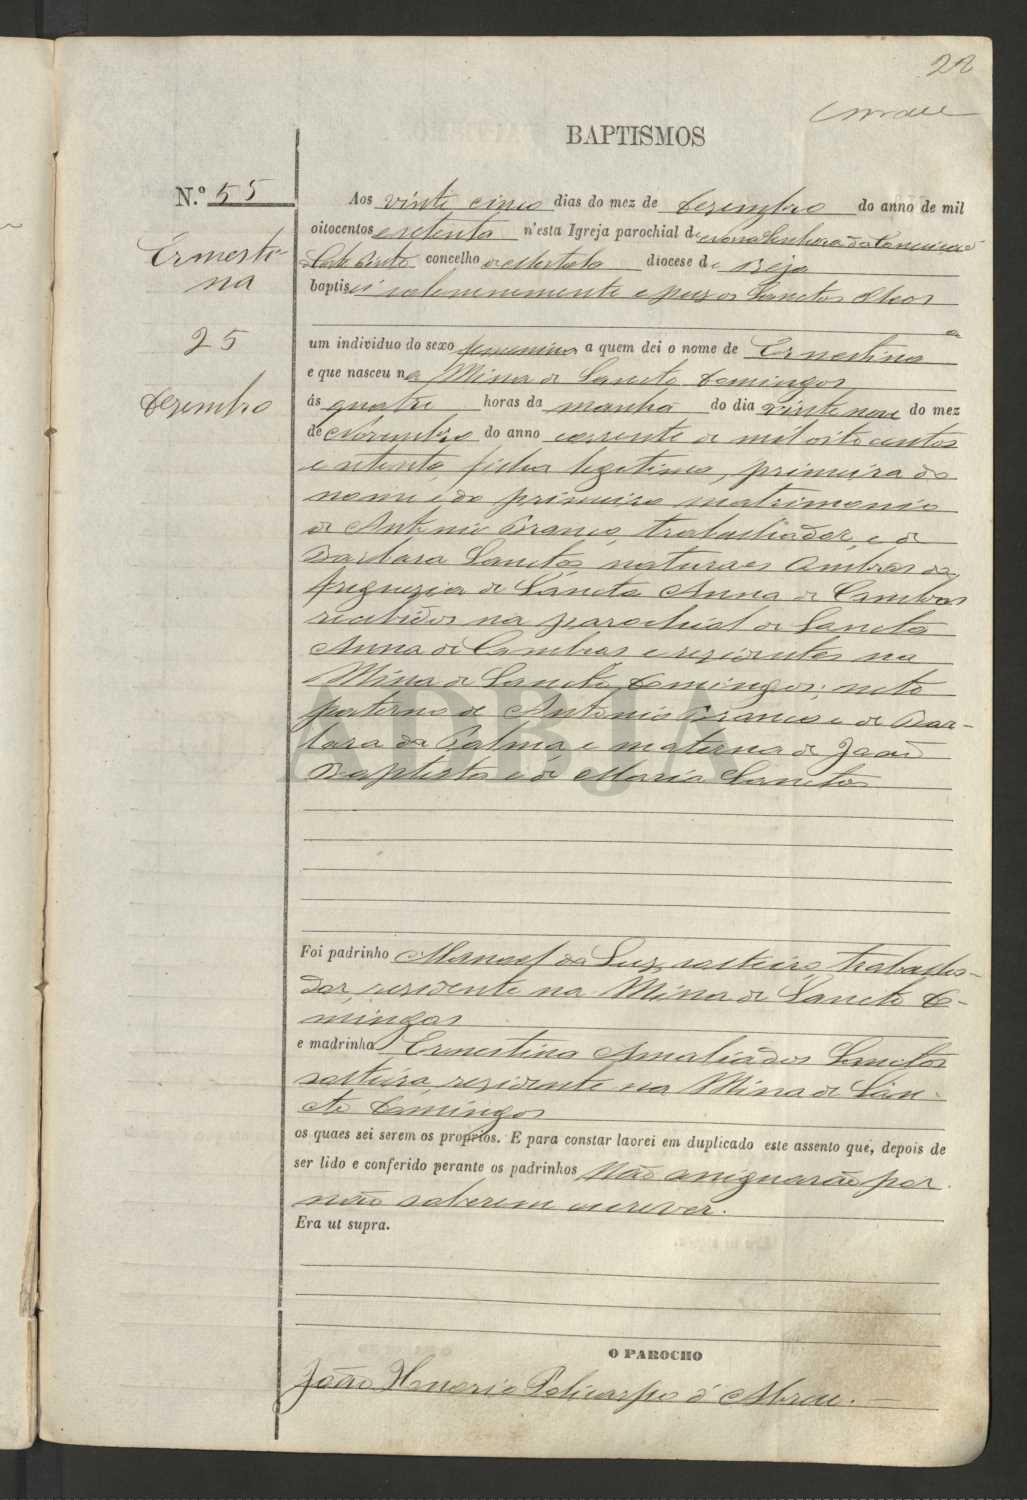 22
BAPTISMOS
N.º 55
Ernesti-
na
25
Dezembro
Aos vinte cinco dias do mez de Dezembro do anno de mil
oitocentos e setenta n'esta Igreja parochial de Nossa Senhora da Conceição
concelho de Mertola diocese de Beja
baptisei solemnemente e puz os Sanctos Oleos
a
um individuo do sexo femenino a quem dei o nome de Ernestina
e que nasceu na Mina de Sancto Domingos
ás quatro horas da manhã do dia vinte nove do mez
de Novembro do anno corrente de mil oito centos
e setenta, filha legitima, primeira do
nome e do primeiro matrimonio
de Antonio Branco, trabalhador, e de
Barbara Sanctos, naturaes ambos da
freguezia de Sancta Anna de Cambas
recebidos na parochial de Sancta
Anna de Cambas e rezidentes na
Mina de Sancto Domingos; neta
paterna de Antonio Branco e de Bar-
bara da Palma e materna de João
Baptista e de Maria Sanctos
ADBJA
Foi padrinho Manoel da Luz, solteiro trabalha-
dor, rezidente na Mina de Sancto Do-
mingos
e madrinha Ernestina Amalia dos Sanctos
solteira, rezidente na Mina de San-
cto Domingos
os quaes sei serem os proprios. E para constar lavrei em duplicado este assento que, depois de
ser lido e conferido perante os padrinhos não assignarão por
não saberem escrever.
Era ut supra.
O PAROCHO
João Honorio Policarpo d'Abreu.